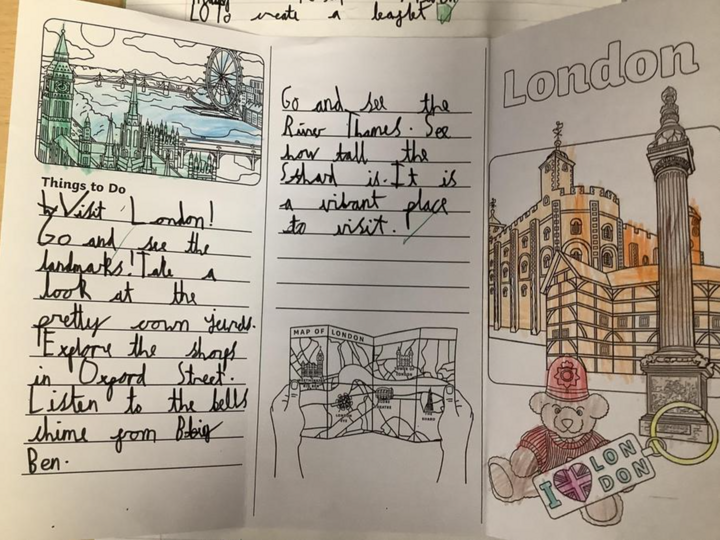 LO To create a leaflet
Things to Do
Visit London!
Go and see the
landmarks! Take a
look at the
pretty crown jewels.
Explore the shops
in Oxford Street.
Listen to the bells
chime from big
Ben.
Go and see the
River Thames. See
how tall the
Sthard is. It is
a vibrant place
to visit.
MAP OF LONDON
LONDON
EYE
THE
SHARD
London
I LON
DON